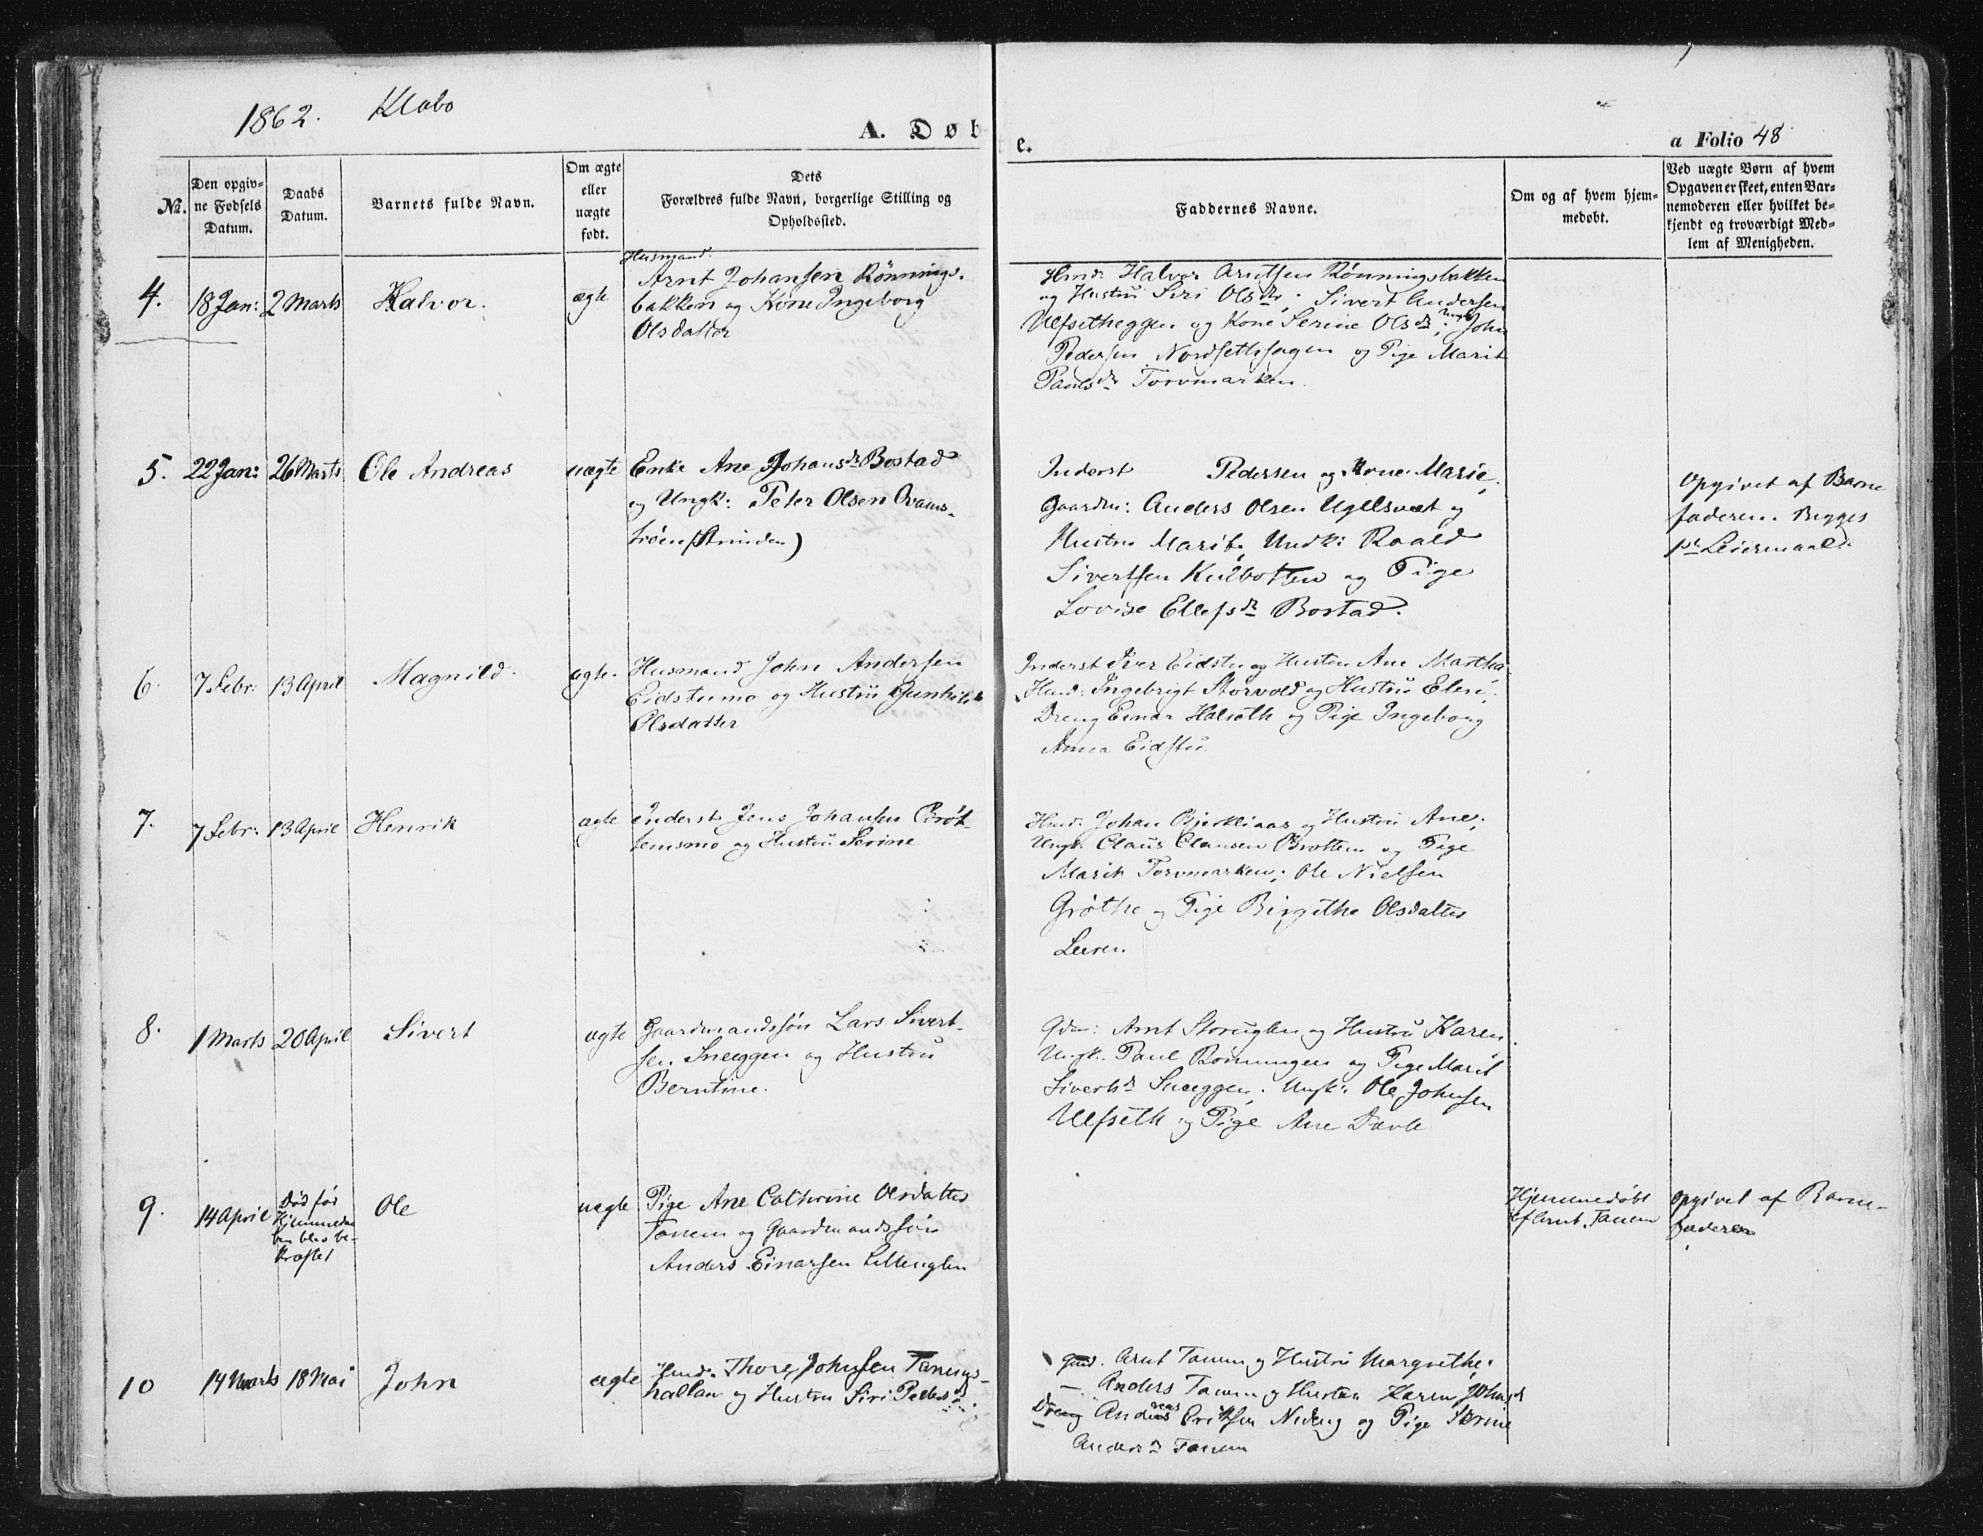 1862. Klæbo
A. Døb
e.
a Folio 48
No.
Den opgiv-
ne Fødsels
Datum.
Daabs
Datum.
Barnets fulde Navn.
Om ægte
eller
uægte
født.
Dets
Forældres fulde Navn, borgerlige Stilling og
Opholdssted.
Faddernes Navne.
Om og af hvem hjem-
medøbt.
Ved uægte Børn af hvem
Opgaven er skeet, enten Bar-
nemoderen eller hvilket be-
kjendt og troværdigt Med-
lem af Menigheden.
4. 18 Jan: 2 Marts Halvor. ægte
Husmand.
Arnt Johansen Rønnings-
bakken og Kone Ingeborg
Olsdatter
Hmd: Halvor Arntsen Rønningsbakken
og Hustru Siri Olsdr; Sivert Andersen
Ulfsetheggen og Kone Serine Olsdr; Ungk John
Pedersen Nordsethhagen og Pige Marit
Paulsdr Torvmarken.
5. 22 Jan: 26 Marts Ole Andreas uægte
Enke Ane Johansdr Bostad
og Ungk: Peter Olsen
(Strinden)
Inderst Pedersen og Kone Marie;
Gaardm: Anders Olsen Ugelsvæt og
Hustru Marit, Undk: Roald
Sivertsen Kulbotten og Pige
Lovise Ellefsdr Bostad.
Opgivet af Barne
faderen. Begges
1ste Leiermaal.
6. 7 Febr: 13 April Magnild. ægte.
Husmand John Andersen
Eidstumo og Hustru Gunhild
Olsdatter
Inderst Iver Eidstu og Hustru Ane Martha.
Hmd: Ingebrigt Storvold og Hustru Elen;
Dreng Einar Halseth og Pige Ingeborg
Anna Eidstu.
7. 7 Febr: 13 April Henrik ægte
Inderst Jens Johansen Brøt-
temsmo og Hustru Serine
Hmd: Johan Bjerkliaas og Hustru Ane;
Ungk. Claus Clausen Brøttem og Pige
Marit Torvmarken; Ole Nielsen
Grøthe og Pige Birgithe Olsdatter
Leeren
8. 1 Marts 20 April Sivert ægte
Gaardmandssøn Lars Sivert-
sen Sneeggen og Hustru
Berntine.
Gdm: Arnt Storuglen og Hustru Karen.
Ungk. Paul Rønningen og Pige Marit
Sivertsdr Sneeggen; Ungk: Ole Johnsen
Ulfseth og Pige Ane
9. 14 April
Død før
Hjemmedaa
ben blev be-
kræftet
Ole uægte
Pige Ane Cathrine Olsdatter
Tanem og Gaardmandssøn
Anders Einarsen Litleuglen
Hjemmedøbt
af Arnt Tanem
Opgivet af Barne-
faderen
10 14 Marts 18 Mai John ægte
Hmd. Thore Johnsen Tanems-
hallan og Hustru Siri Pedersdr.
Gmd. Arnt Tanem og Hustru Margrethe;
— Anders Tanem og Hustru Karen Johnsdr
Dreng Andreas Eriksen Nideng og Pige Serine
Andersdr Tanem